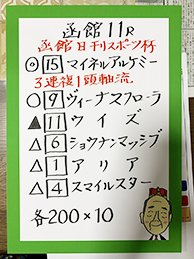 函館11R
函館日刊スポーツ杯
◎15マイネルアルケミー
3連複1頭軸流.
○9ヴィーナスフローラ
▲11ウイズ
△6ショウナンマッシブ
△1アリア
△4スマイルスター
各200×10